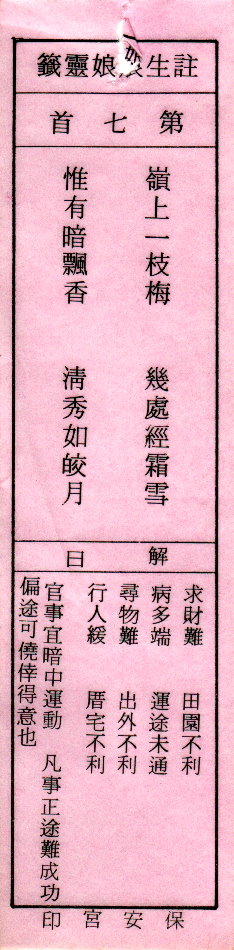 註生娘娘靈籤
第七首
嶺上一枝梅 幾處經霜雪
惟有暗飄香 清秀如皎月
解曰
求財難 田園不利
病多端 運途未通
尋物難 出外不利
行人緩 厝宅不利
官事宜暗中運動 凡事正途難成功
偏途可僥倖得意也
保安宮印